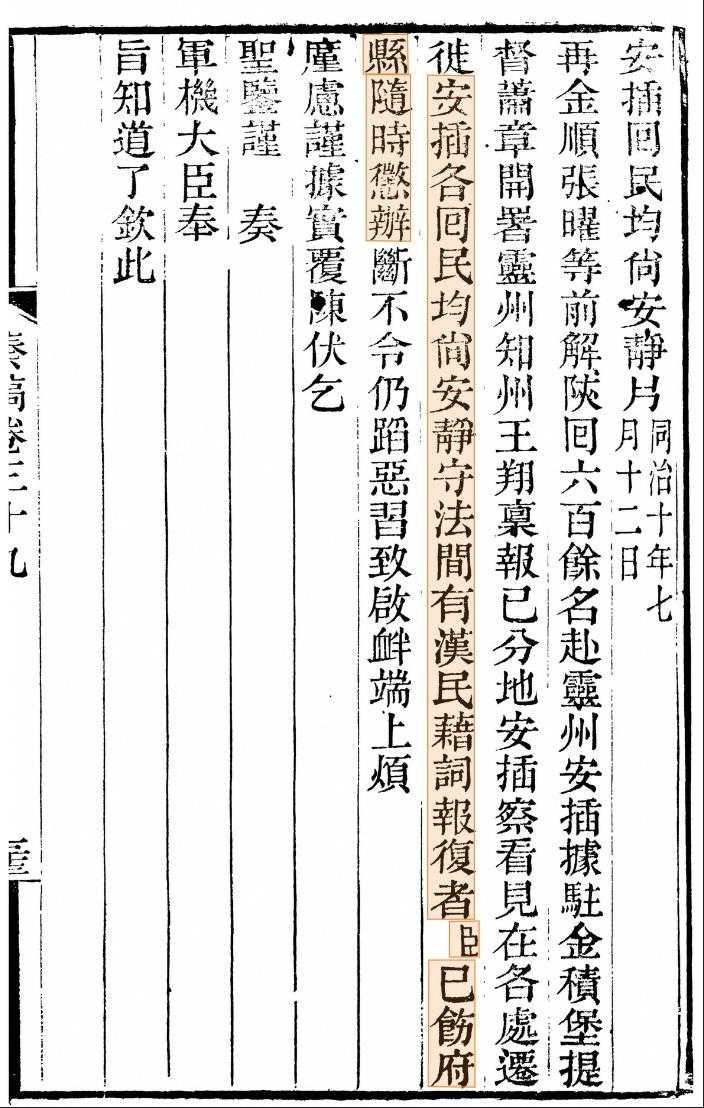 安插回民均尙安靜片同治十年七月十二日
再金順張曜等前解陝回六百餘名赴靈州安插據駐金積堡提
督蕭章開署靈州知州王翔稟報已分地安插察看見在各處遷
徙安插各回民均尙安靜守法間有漢民藉詞報復者臣已飭府
縣隨時懲辦斷不令仍蹈惡習致啟衅端上煩
廑慮謹據實覆陳伏乞
聖鑒謹 奏
軍機大臣奉
旨知道了欽此
奏稿卷三十九